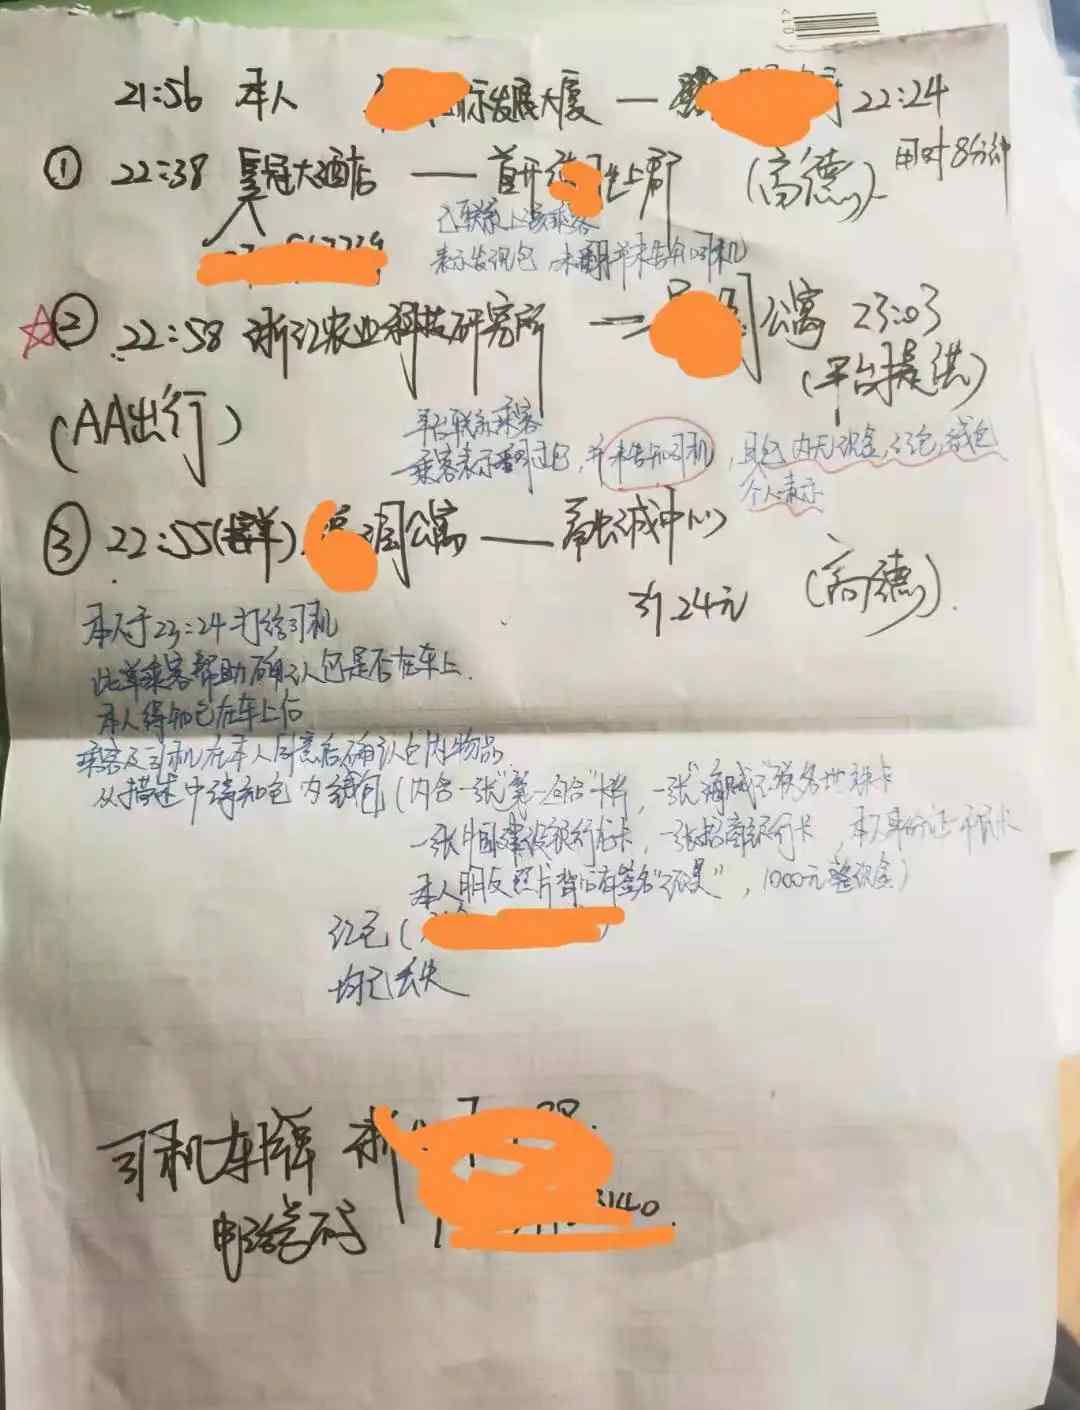 21:56 本人 际发展大厦 — 22:24
① 22:38 皇冠大酒店 — 首开 上郡 (高德) 用时8分钟
已联系上该乘客
表示发现包,未翻并未告知司机
② 22:58 浙江农业科技研究所 — 公寓 23:03
(平台提供)
(AA出行)
平台联系乘客
乘客表示看到过包,并未告知司机,且包内无现金,红包,钱包
个人表示
③ 22:55(接单) 公寓 — 诚中心
24元 (高德).
本人于23:24打给司机
此单乘客帮助确认包是否在车上.
本人得知包在车上后
乘客及司机在本人同意后确认包内物品.
从描述中得知包内钱包(内含一张"第一百合"卡片,一张"海贼王"
一张中国建设银行卡,一张招商银行卡,本人身份证
本人朋友照片背后有签名,1000元整现金)
红包(
均已丢失
司机车牌 浙
电话号码 3140